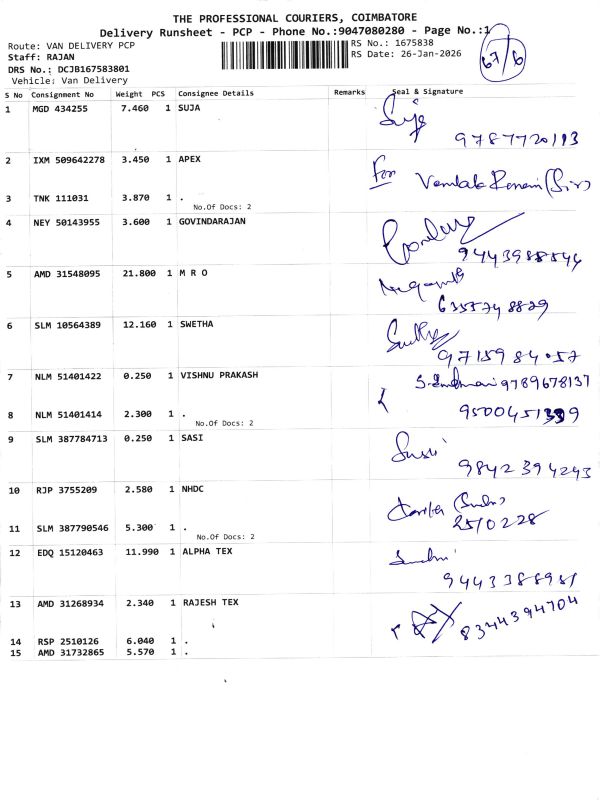 THE PROFESSIONAL COURIERS, COIMBATORE
Delivery Runsheet - PCP - Phone No.:9047080280 - Page No.:1
Route: VAN DELIVERY PCP
Staff: RAJAN
DRS No.: DCJB167583801
Vehicle: Van Delivery
RS No.: 1675838
RS Date: 26-Jan-2026
67/6
S No Consignment No Weight PCS Consignee Details Remarks Seal & Signature
1 MGD 434255 7.460 1 SUJA
9787720113
2 IXM 509642278 3.450 1 APEX
For
3 TNK 111031 3.870 1 .
No.Of Docs: 2
4 NEY 50143955 3.600 1 GOVINDARAJAN
9443988544
5 AMD 31548095 21.800 1 M R O
6355748829
6 SLM 10564389 12.160 1 SWETHA
9715984057
7 NLM 51401422 0.250 1 VISHNU PRAKASH
9789678137
8 NLM 51401414 2.300 1 .
No.Of Docs: 2
9 SLM 387784713 0.250 1 SASI
9842394243
10 RJP 3755209 2.580 1 NHDC
11 SLM 387790546 5.300 1 .
No.Of Docs: 2
2510228
12 EDQ 15120463 11.990 1 ALPHA TEX
9443388981
13 AMD 31268934 2.340 1 RAJESH TEX
8344394704
14 RSP 2510126 6.040 1 .
15 AMD 31732865 5.570 1 .